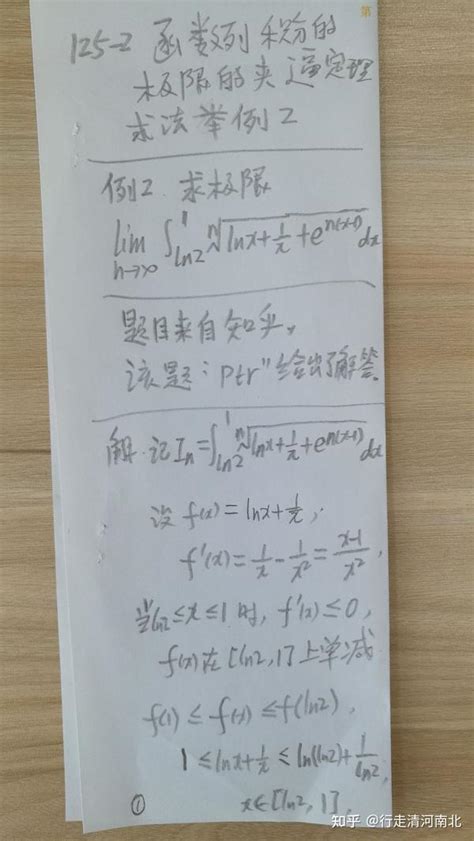 第
125-2 函数列积分的
极限的夹逼定理
求法举例2
例2 求极限
lim n→∞ ∫_{ln2}^{1} ⁿ√(lnx+1/x+e^{n(x-1)}) dx
题目来自知乎,
该题:"ptr"给出了解答.
解.记Iₙ=∫_{ln2}^{1} ⁿ√(lnx+1/x+e^{n(x-1)}) dx
设 f(x)=lnx+1/x,
f'(x)=1/x-1/x²=(x-1)/x²,
当ln2≤x≤1时, f'(x)≤0,
f(x)在[ln2,1]上单减
f(1)≤f(x)≤f(ln2),
1≤lnx+1/x≤ln(ln2)+1/ln2,
x∈[ln2,1],
①
知乎 @行走清河南北